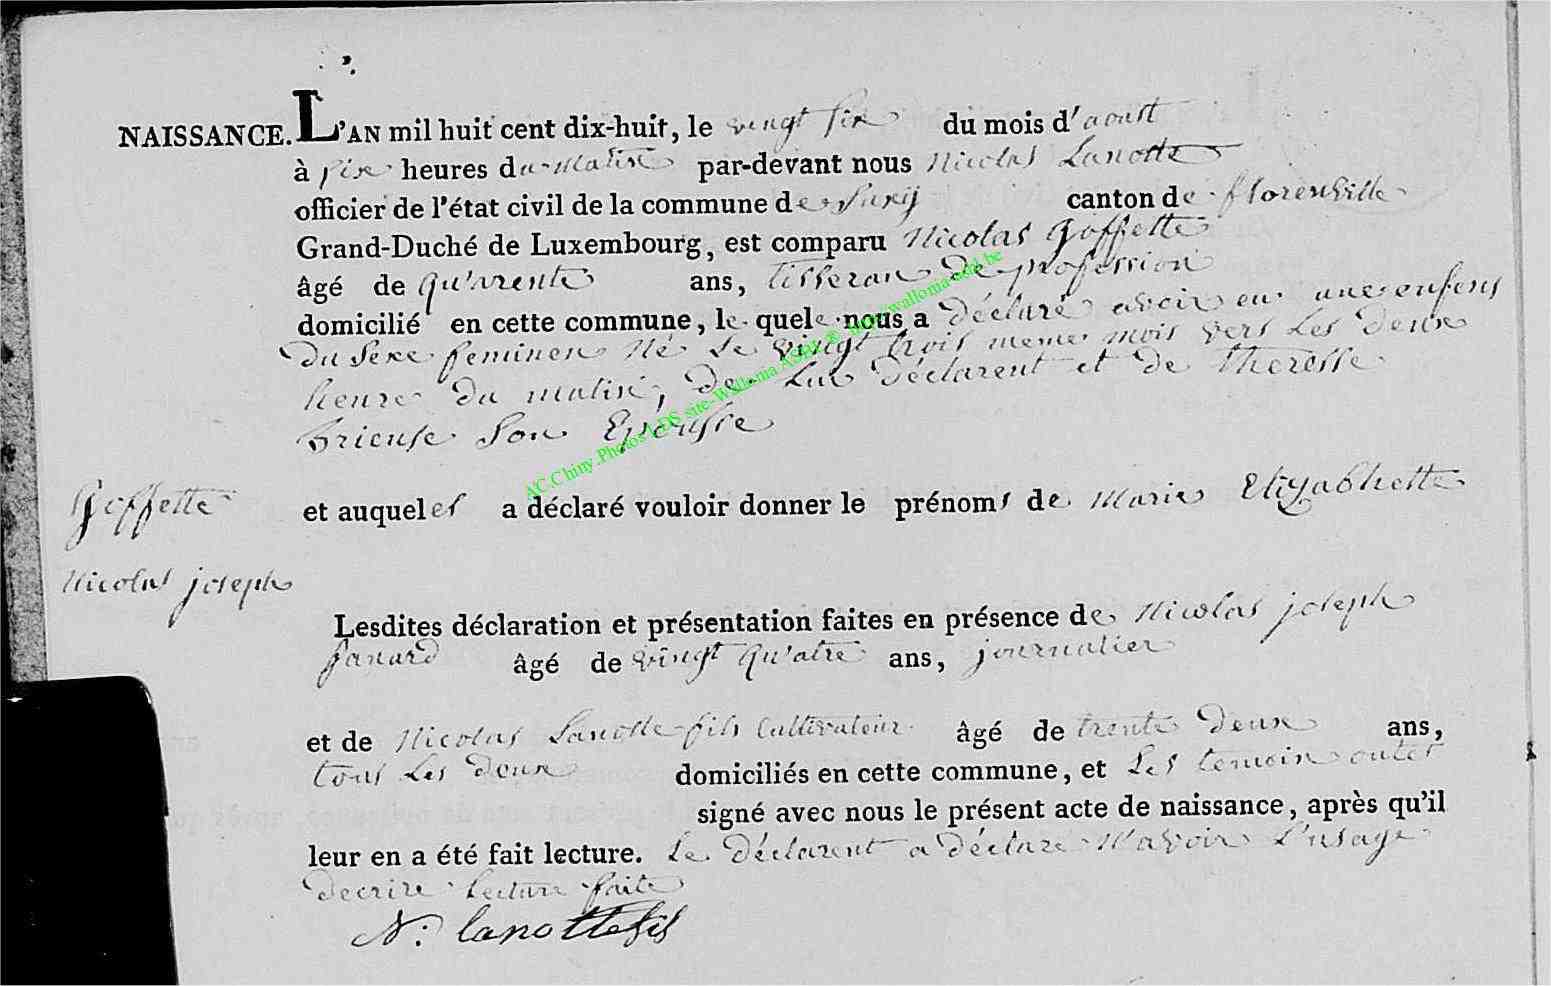 NAISSANCE. L'AN mil huit cent dix-huit, le vingt six du mois d'aoust
à six heures du matin par-devant nous Nicolas Lanotte
officier de l'état civil de la commune de Suxy canton de florenville
Grand-Duché de Luxembourg, est comparu Nicolas Goffette
âgé de qu'arente ans, tisseran de profession
domicilié en cette commune, le quele nous a déclaré avoir eu une enfens
du sexe feminen né le vingt trois meme mois vers les deux
heure du matin, de lui déclarent et de theresse
brieuse son Epousse
Goffette et auqueles a déclaré vouloir donner le prénoms de marie Elizabhette
Nicolas joseph
Lesdites déclaration et présentation faites en présence de Nicolas joseph
âgé de vingt qu'atre ans, journalier
et de Nicolas Lanotte fils Cultivateur âgé de trente deux ans,
tous les deux domiciliés en cette commune, et Les temoin ontet
signé avec nous le présent acte de naissance, après qu'il
leur en a été fait lecture. Le déclarent a déclaré n'avoir l'usage
decrire lecture faite
N: lanotte fils
AC.Chiny.Photos LDS site-Walloma ASBL ® walloma-add.be